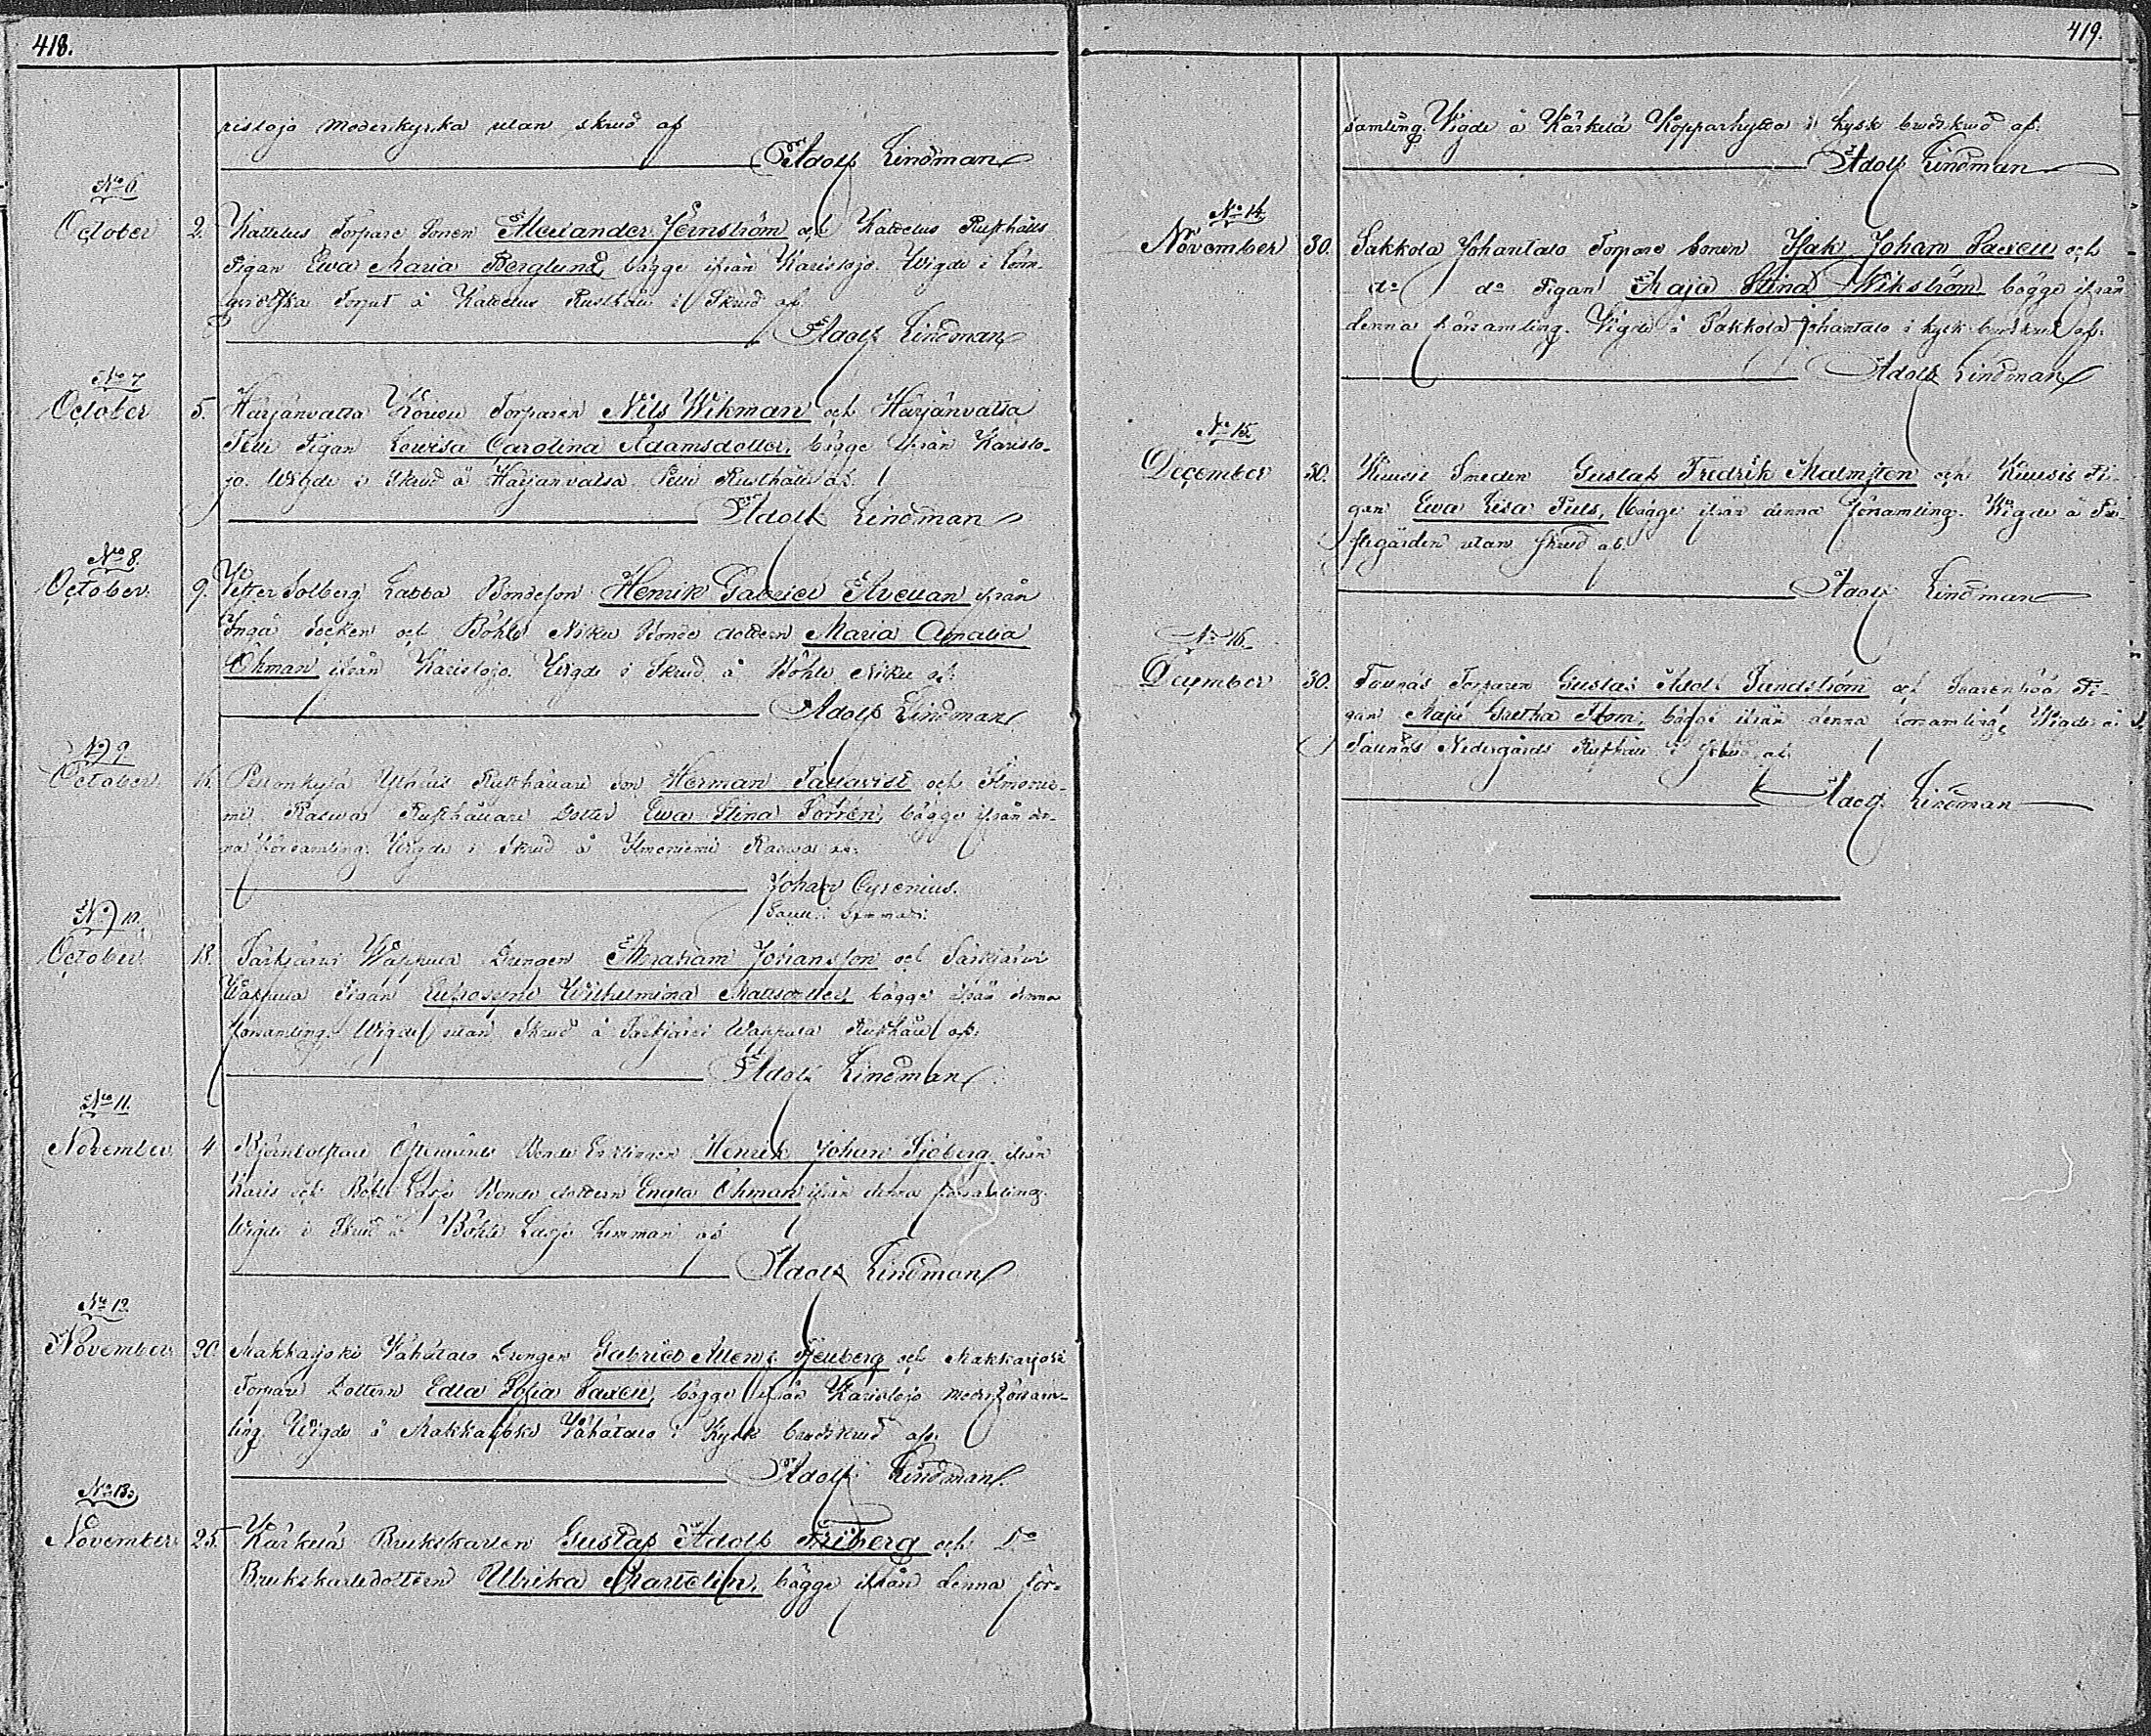 418.
ristojo Moderkyrka utan skrud af
Adolf Lindman
No 6.
October 2. Kattelus Torpare Sonen Alexander Jernström och Kattelus Rusthålls
Pigan Ewa Maria Berglund, bägge ifrån Karislojo. Wigde i
Torpet å Kattelus Rusthåll i Skrud af
Adolf Lindman
No 7
October 5. Härjänvatsa Torparen Nils Wikman och Härjänvatsa
Pigan Lowisa Carolina Adamsdotter, bägge ifrån Karislo-
jo. Wigde i Skrud å Härjänvatsa Rusthåll af
Adolf Lindman
No 8.
October 9. Wester Solberg Labba Bondeson Henrik Gabriel Avellan ifrån
Ingå Socken och Böhle Niku Bonde dottern Maria Amalia
Öhman ifrån Karislojo. Wigde i Skrud å Böhle Niku af
Adolf Lindman
No 9
October 16. Rusthållare Son Herman Tallqvist och Ilmonie-
mi Rusthållare Dotter Ewa Stina Forsén, bägge ifrån den-
na Församling. Wigde i Skrud å Ilmoniemi af
Johan Cyrenius.
No 10.
October 18. Särkjärvi Wappula Drengen Abraham Johansson och Särkjärvi
Wappula Pigan Eufrosyne Wilhelmina Mattsdotter, bägge ifrån denna
församling. Wigde utan Skrud å Särkjärvi Wappula Rusthåll af
Adolf Lindman
No 11.
November 4 Bonde Enklingen Henrik Johan Sjöberg ifrån
Karis och Böhle Lasse Bonde dottern Engla Öhman ifrån denna församling.
Wigde i Skrud å Böhle Lasse hemman af
Adolf Lindman
No 12.
November 20. Makkarjoki Wähätalo Drengen Gabriel och Makkarjoki
Torpare Dottern Edla Sofia Taxell, bägge ifrån Karislojo moderförsam-
ling. Wigde å Makkarjoki Wähätalo i Kyrk brudskrud af.
Adolf Lindman
No 13.
November 25. Kärkelä Brukskarlen Gustaf Adolf Friberg och Do
Brukskarledottern Ulrika Martelin, bägge ifrån denna för-
419.
samling. Wigde å Kärkelä Kopparhytta i kyrk brudskrud af.
Adolf Lindman
No 14.
November 30. Sakkola Johantalo Torpare Sonen Isak Johan Taxell och
do do Pigan Maja Stina Wikström bägge ifrån
denna församling. Wigde å Sakkola Johantalo i kyrk brudskrud af.
Adolf Lindman
No 15.
December 30. Smeden Gustaf Fredrik Malmsten och Pi-
gan Ewa Lisa bägge ifrån denna församling. Wigde å Pre-
stegården utan skrud af.
Adolf Lindman
No 16.
December 30. Torparen Gustaf Adolf Sundström och Pi-
gan Maja Gretha bägge ifrån denna församling. Wigde å
Nedergårds Rusthåll i skrud af.
Adolf Lindman